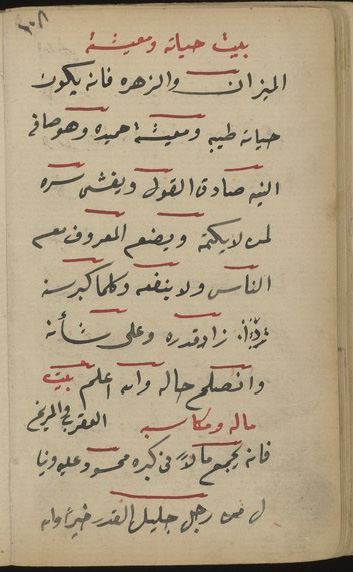 ٢٠٨
بيت حياته ومعيشته
الميزان والزهره فانه يكون
حياته طيبه ومعيشته احميده وهو صافي
النيه صادق القول ويفشي سره
لمن لا يكتمه ويصنع المعروف مع
الناس ولا ينفعه وكلما كبر سنه
زاد قدره وعلى شأنه
وانصلح حاله والله اعلم بيت
ماله ومكاسبه العقرب والمريخ
فانه يجمع مالاً في كبره محسود عليه وينا
ل من رجل جليل القدر خيراً وانه